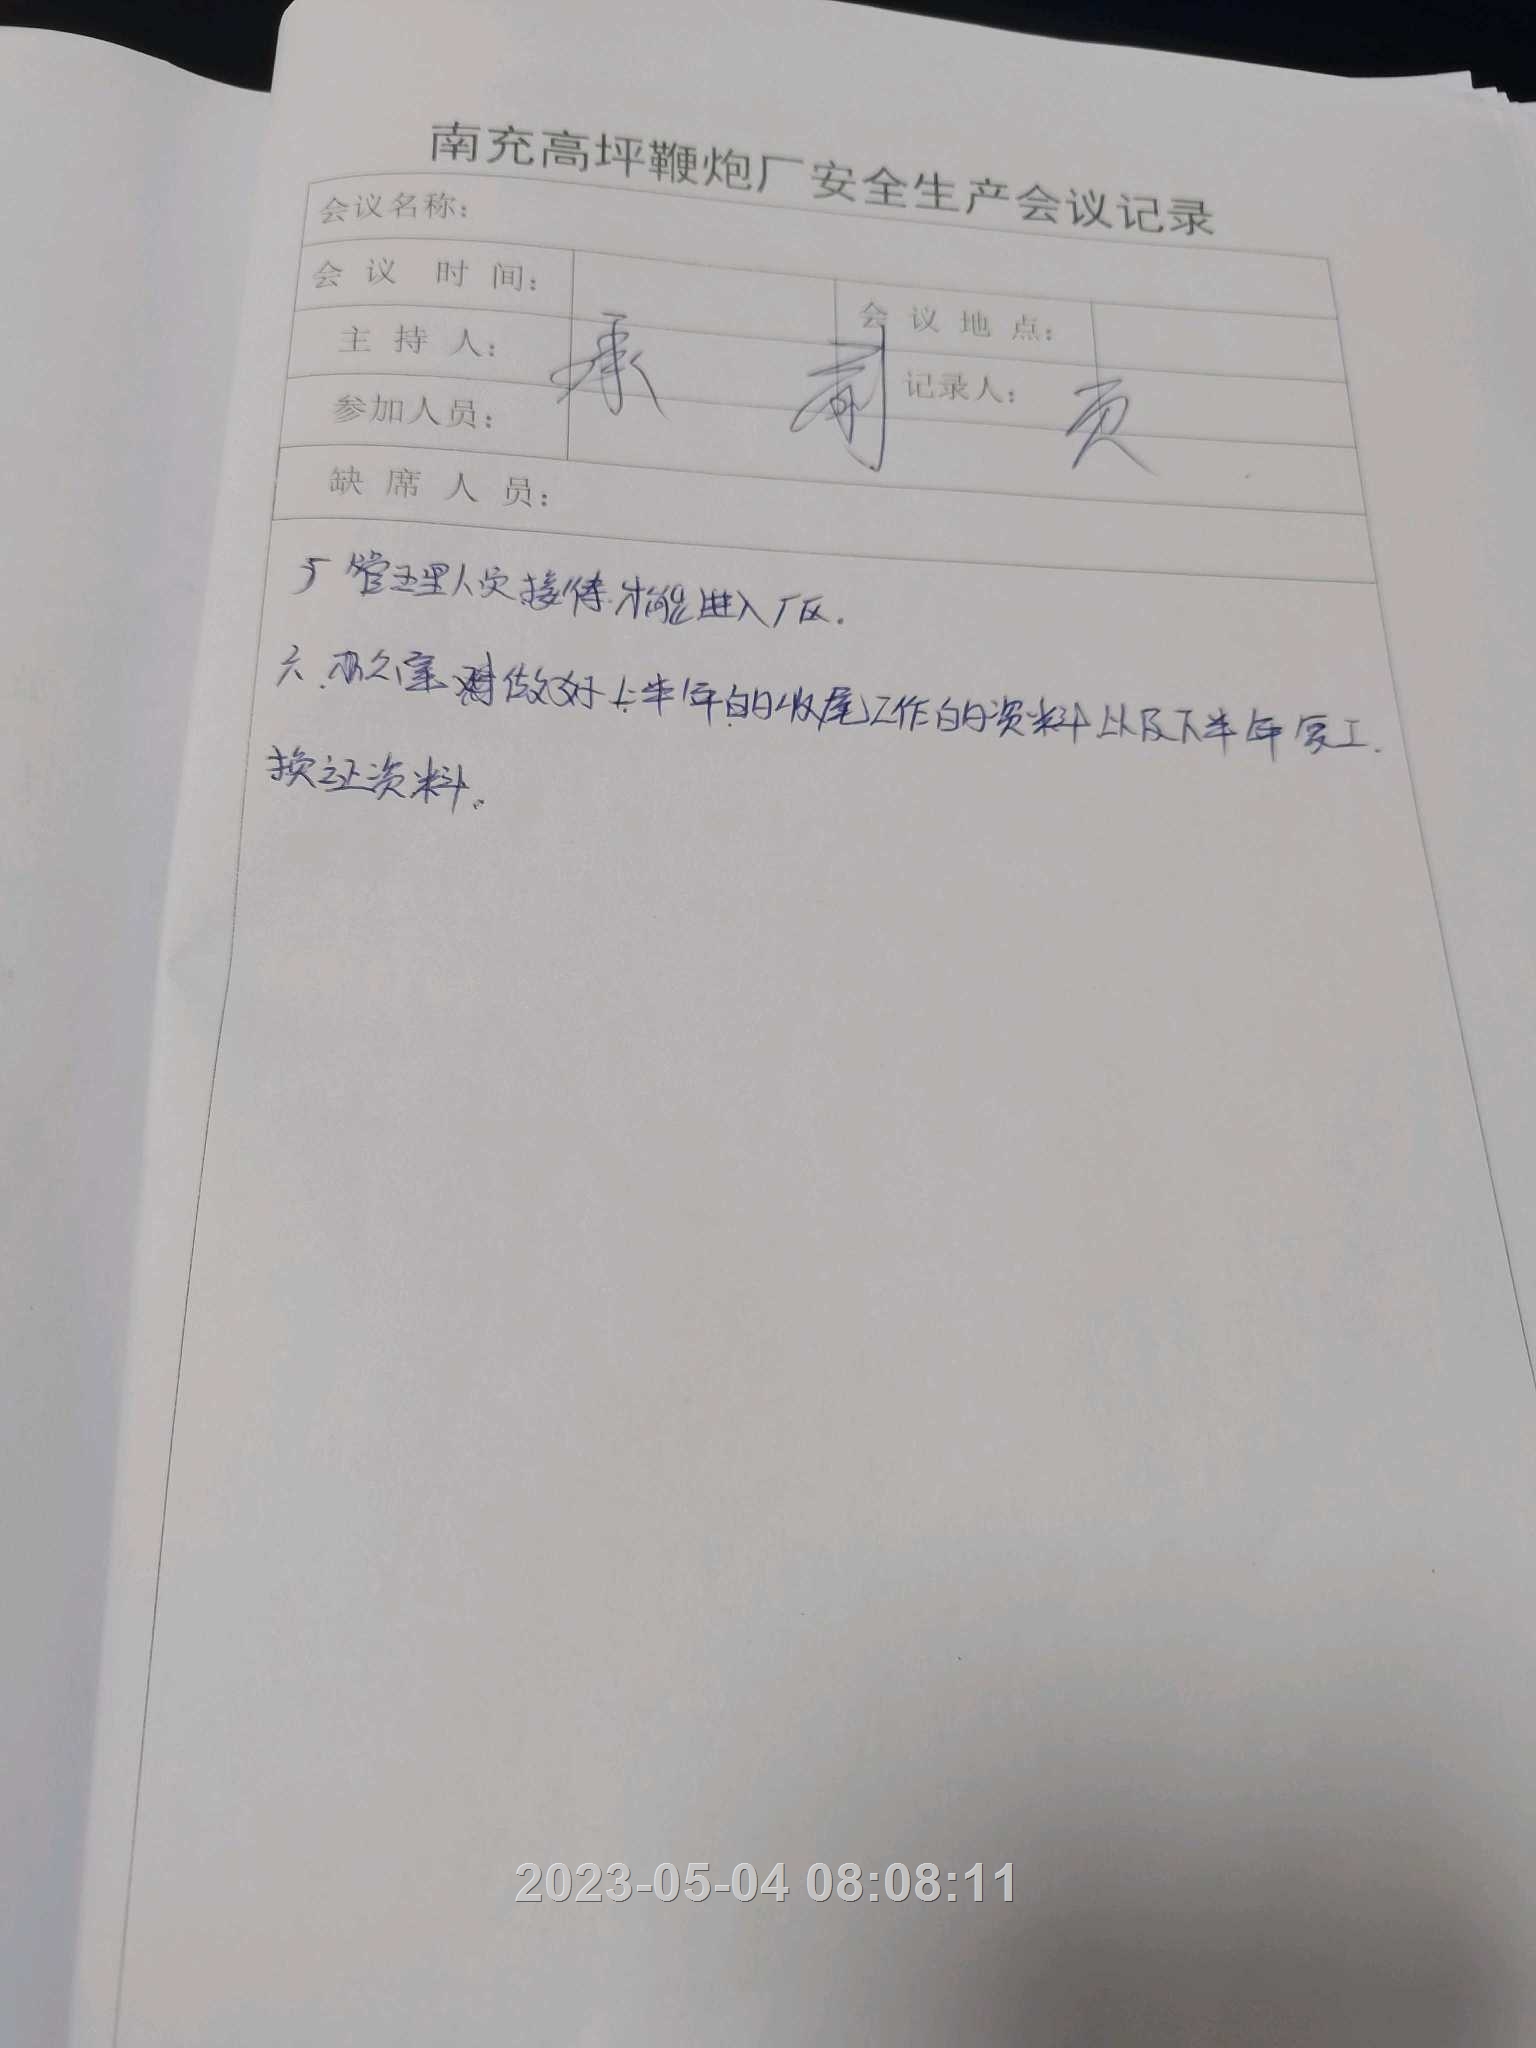 南充高坪鞭炮厂安全生产会议记录
会议名称：
会议时间： 会议地点：
主持人： 记录人：
承 前 页
参加人员：
缺席人员：
厂管理人员接待才能进入厂区.
六.办公室 做好上半年的收尾工作的资料以及下半年复工.
换证资料。
2023-05-04 08:08:11